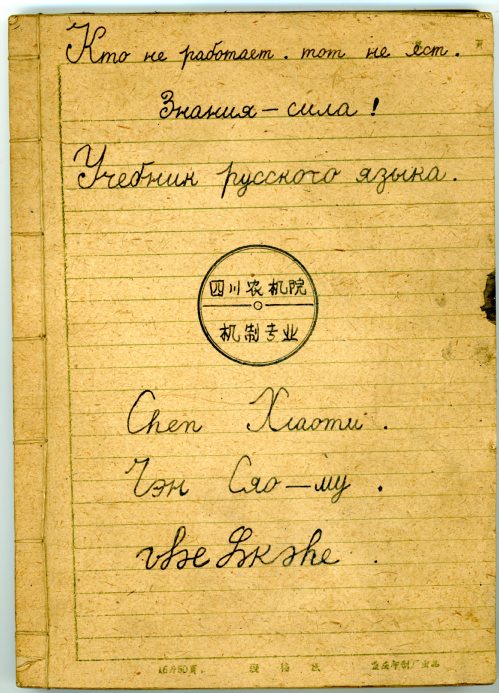 Кто не работает. тот не ест.
Знания – сила!
Учебник русского языка.
四川农机院
机制专业
Chen Xiaomu.
Чэн Сяо–му.